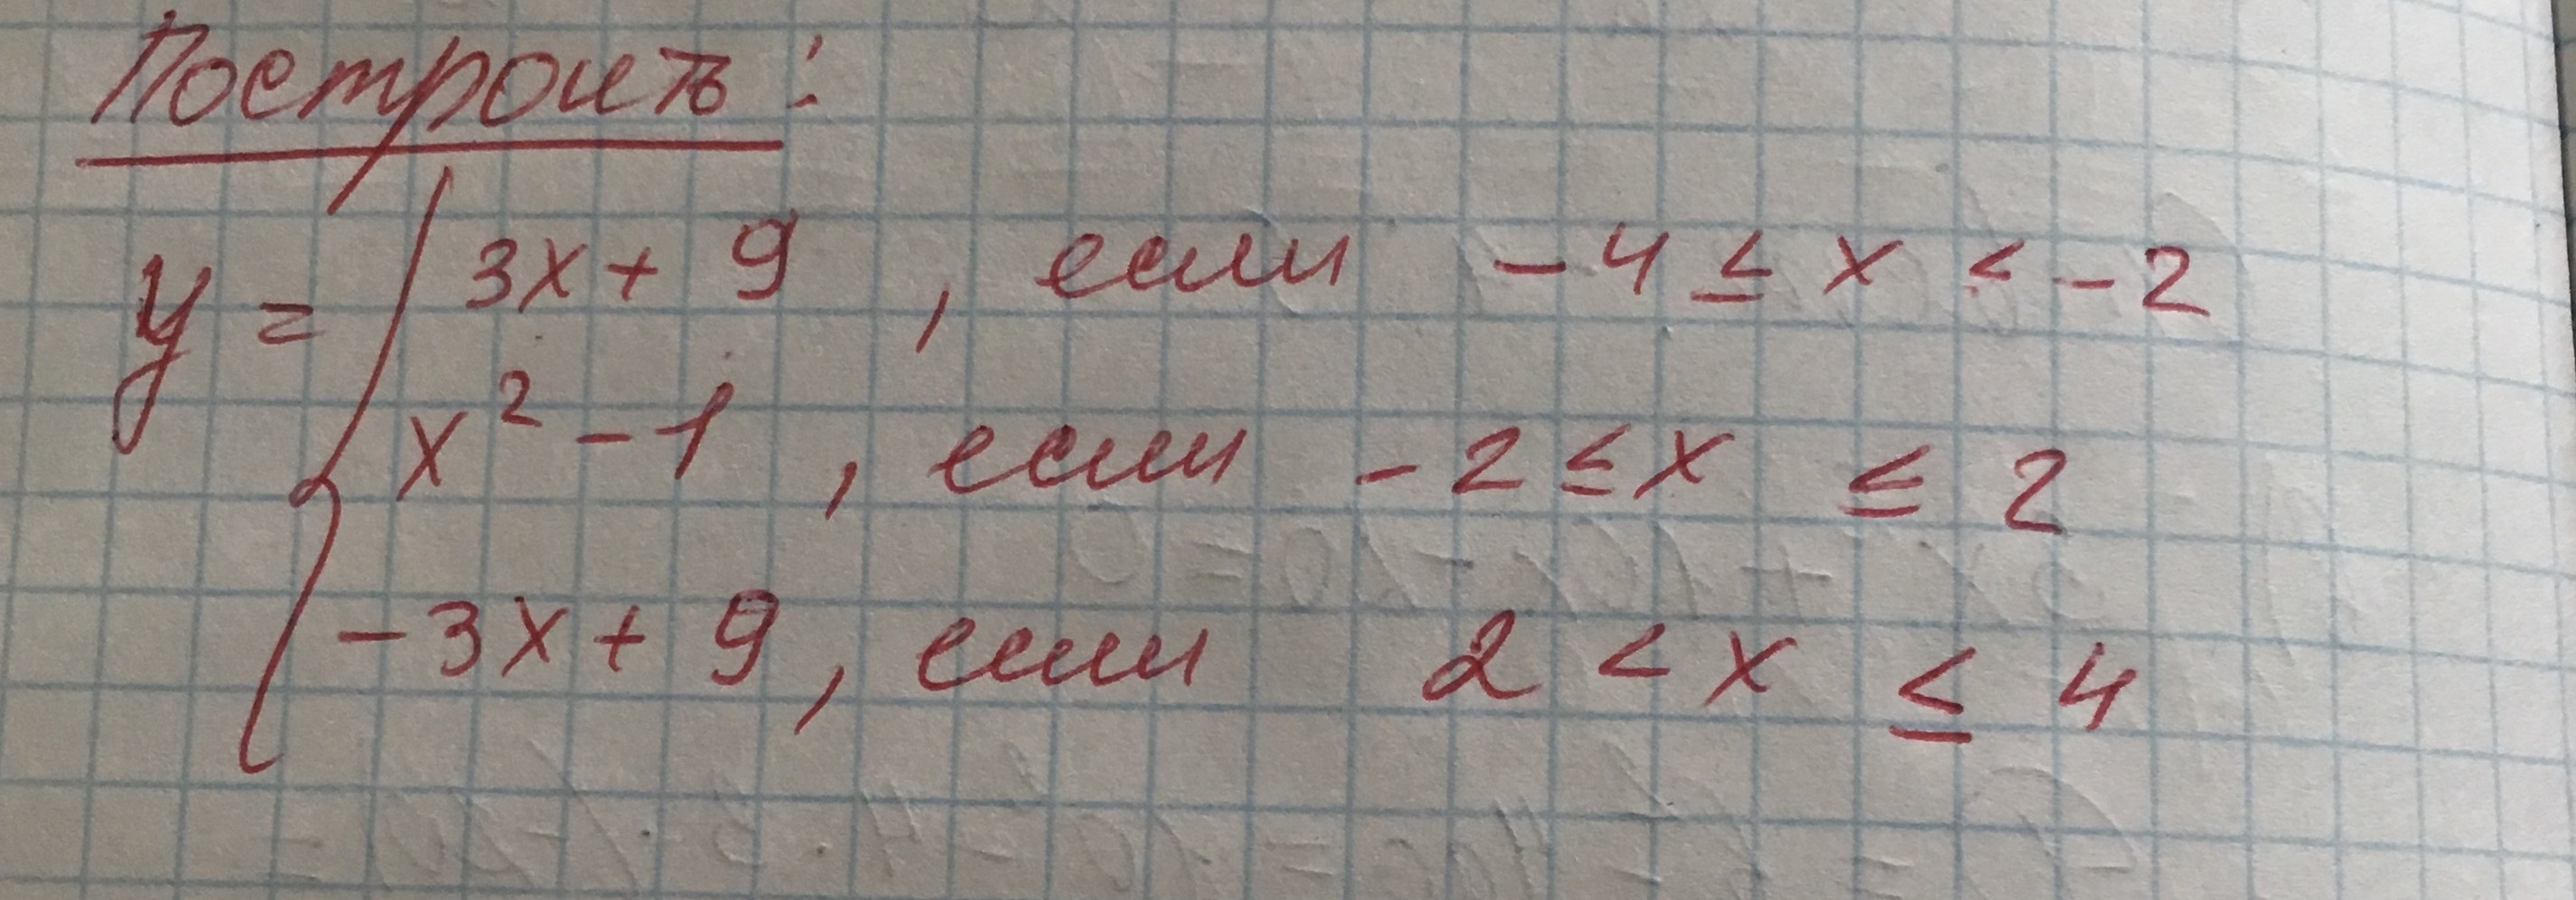 Построить:
y = { 3x + 9, если -4 ≤ x < -2
x² - 1, если -2 ≤ x ≤ 2
-3x + 9, если 2 < x ≤ 4